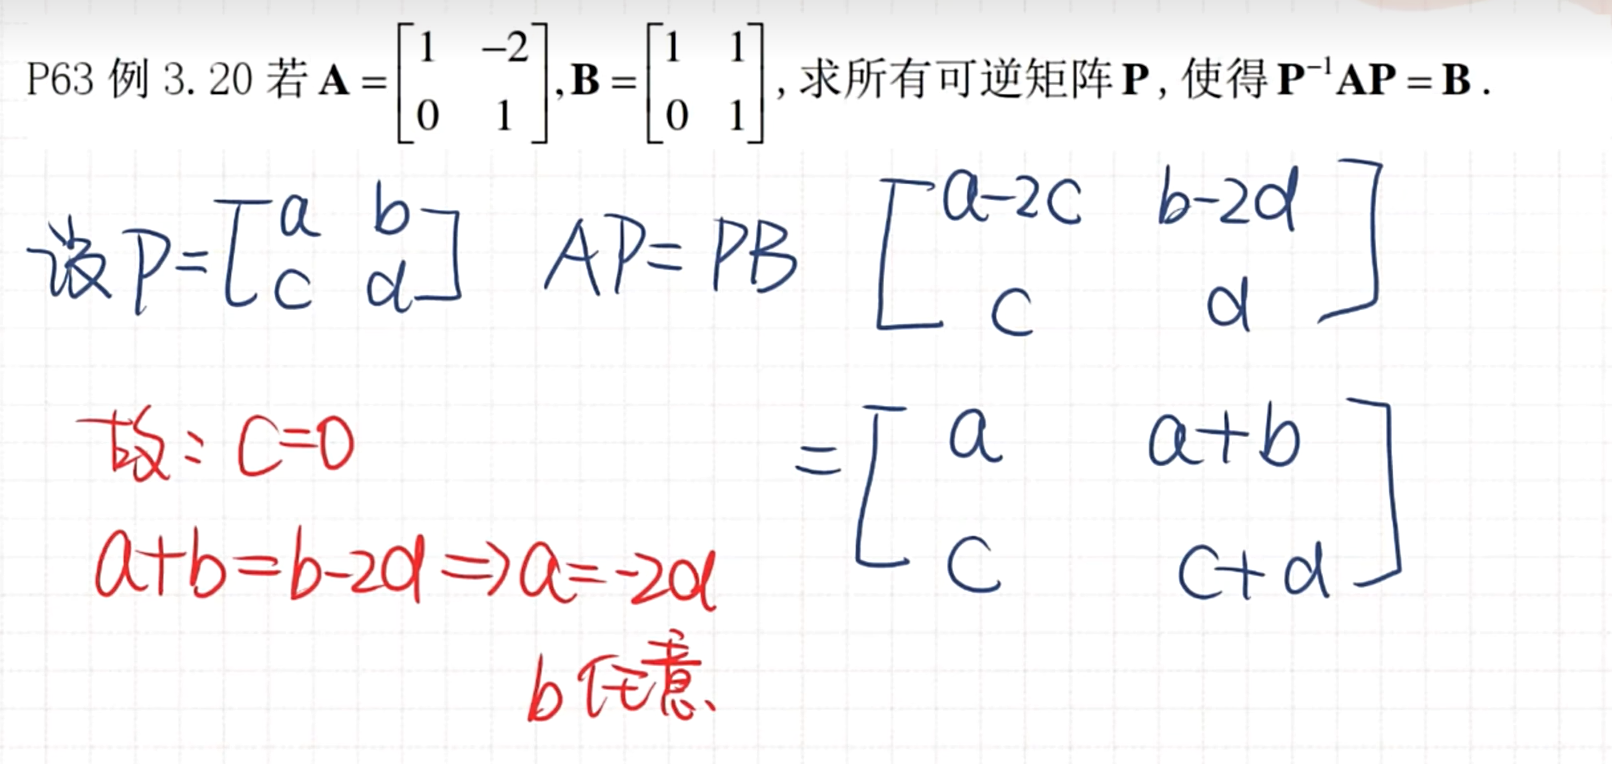 P63 例 3. 20 若 A = [1 -2; 0 1], B = [1 1; 0 1], 求所有可逆矩阵 P, 使得 P⁻¹AP = B .
设 P = [a b; c d] AP = PB [a-2c b-2d; c d]
= [a a+b; c c+d]
故: c=0
a+b=b-2d ⇒ a=-2d
b 任意、